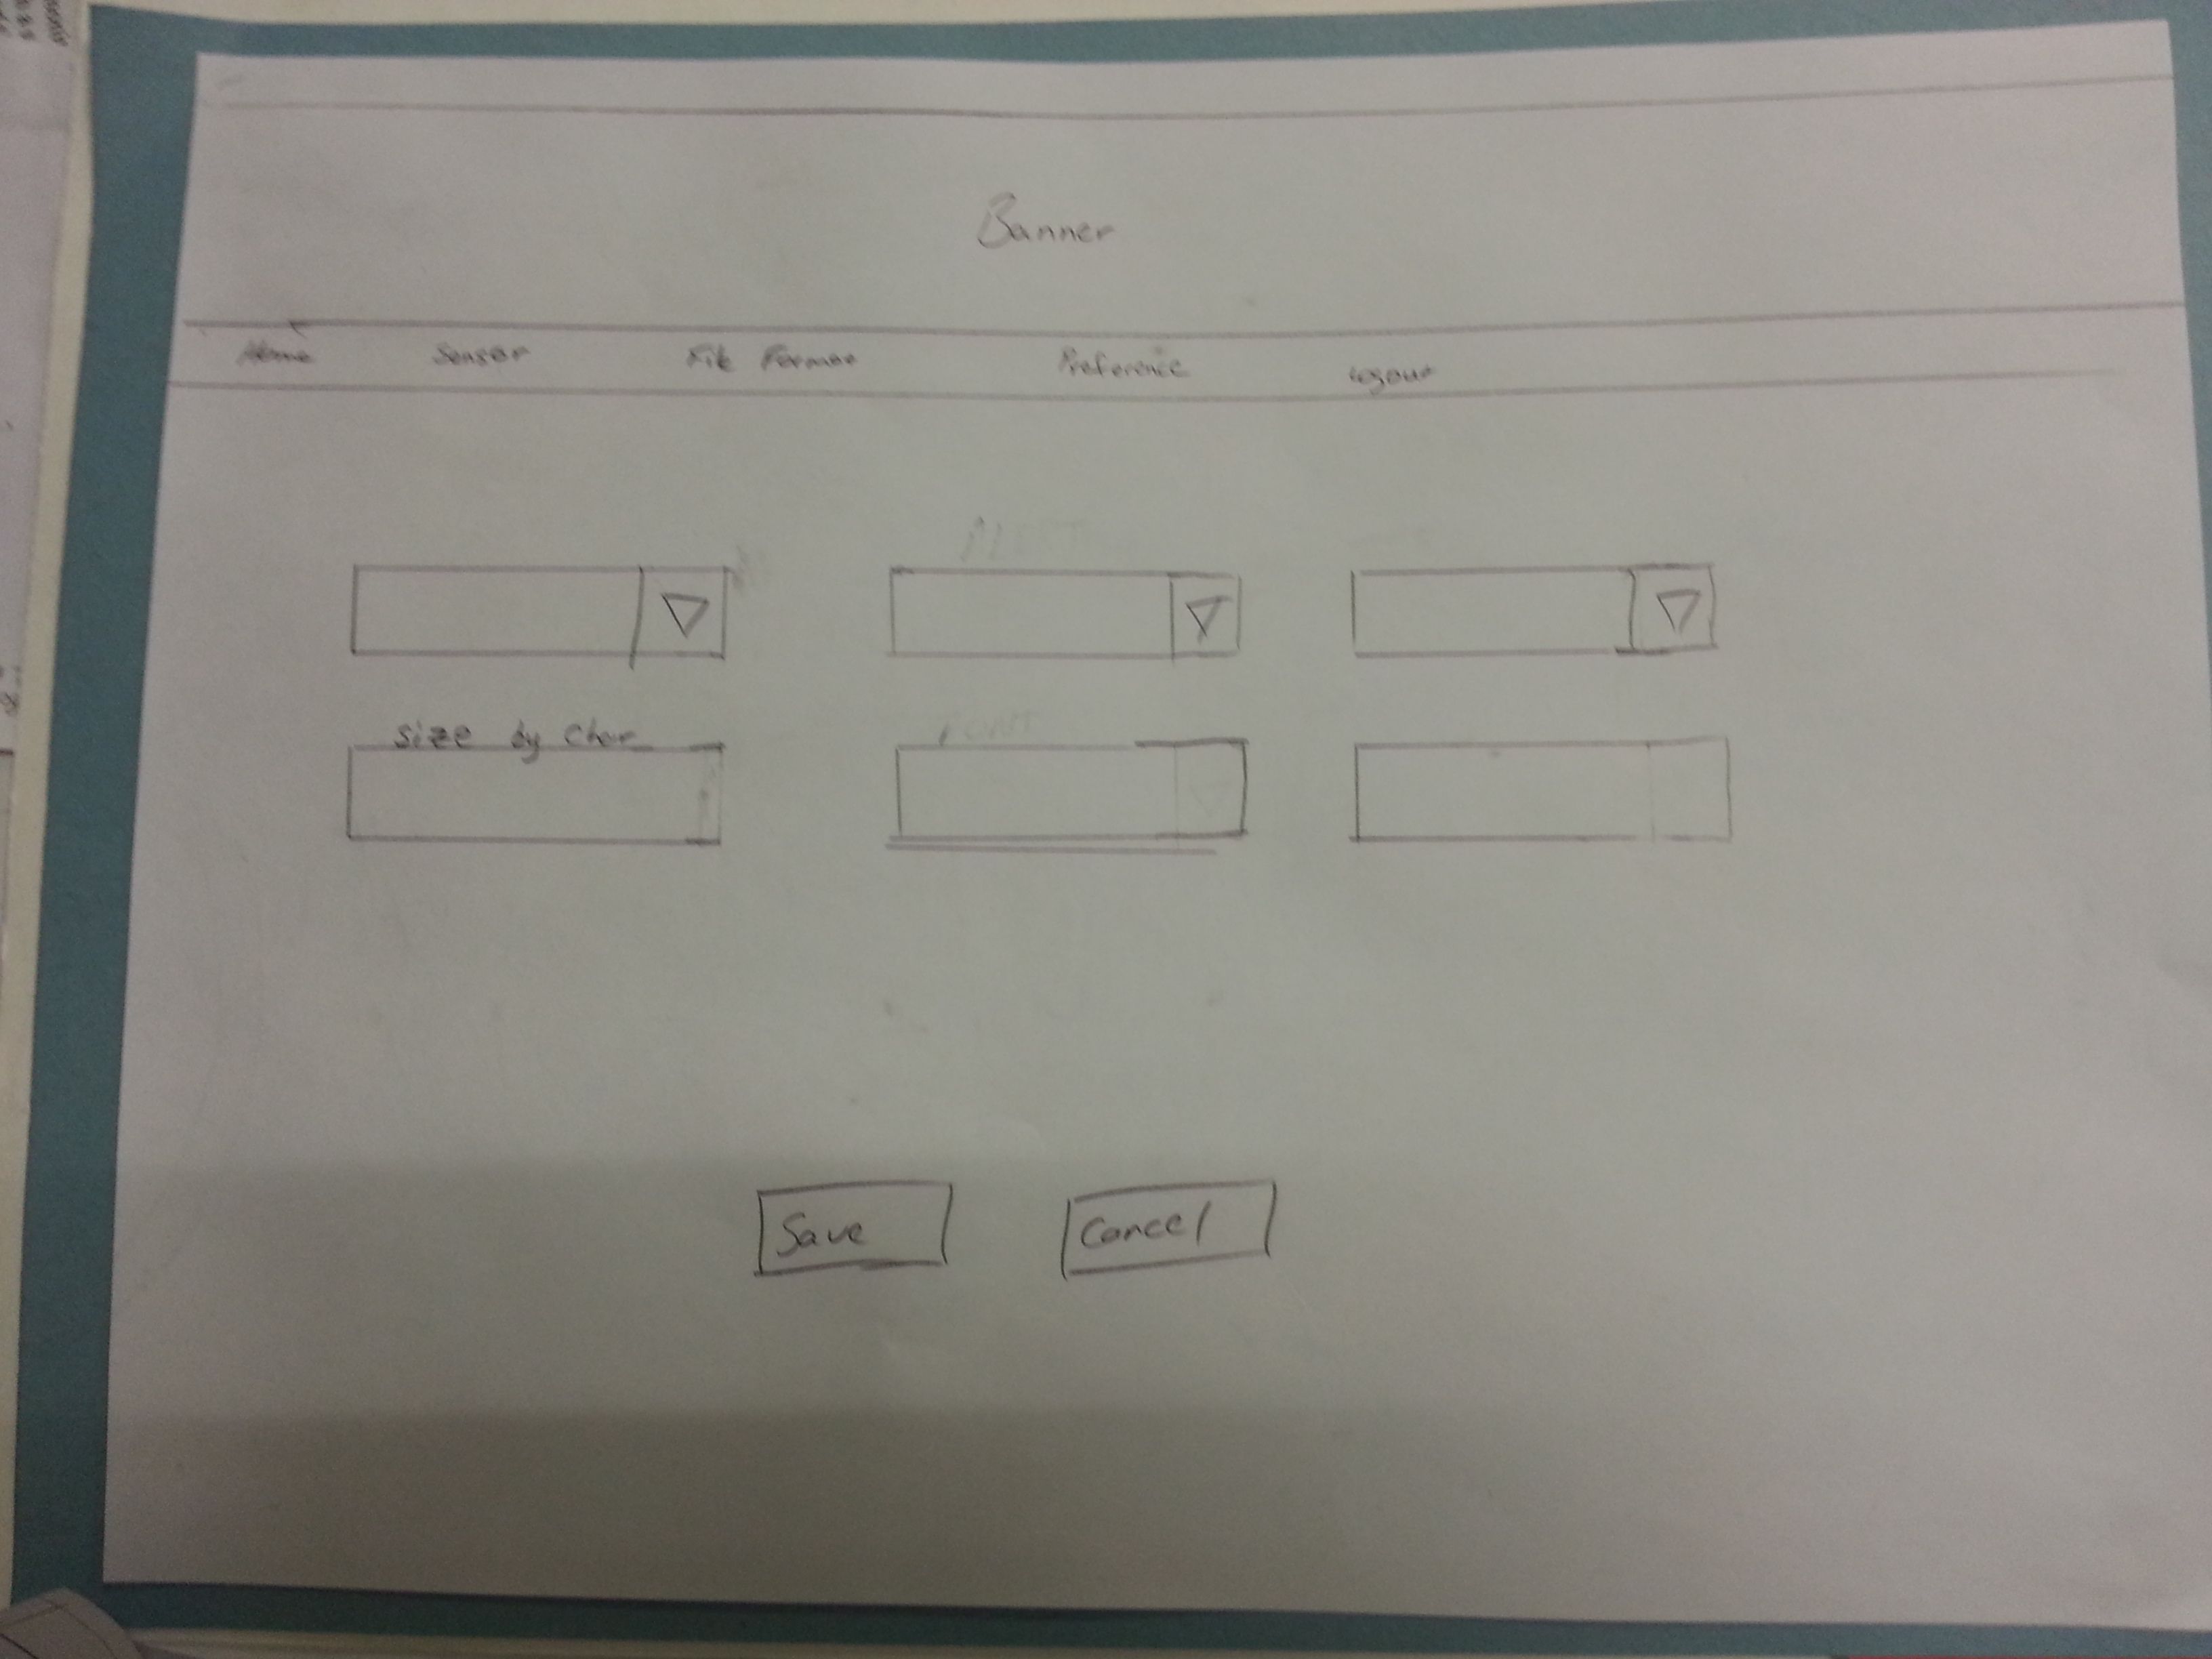 Banner
Home Sensor File Format Preference Logout
size by Char
Font
Save Cancel